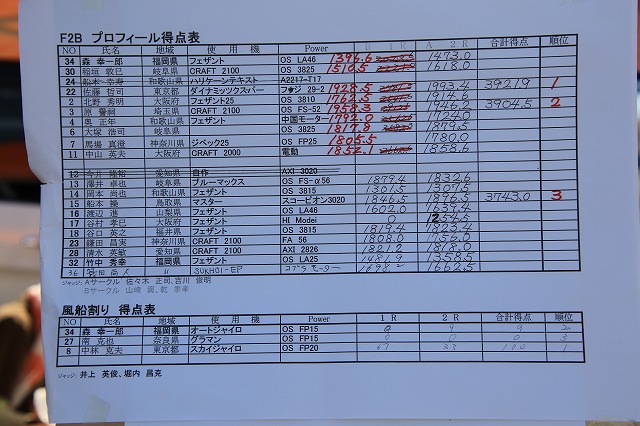 F2B プロフィール得点表
NO 氏名 地域 使用機 Power B 1R A 2R 合計得点 順位
34 森 幸一郎 福岡県 フェザント OS LA46 1396.6 1473.0
30 稲垣 敦巳 岐阜県 CRAFT 2100 OS 3825 1510.5 1618.0
24 船本 幸寿 和歌山県 ハリケーンテキスト A2217-T17
22 佐藤 哲司 東京都 ダイナミックスパー フッジ 29-2 1928.5 1993.4 3921.9 1
2 北野 秀明 大阪府 フェザント25 OS 3810 1762.5 1814.6
3 原 誉詞 埼玉県 CRAFT 2100 OS FS-52 1958.3 1946.2 3904.5 2
4 奥 正年 和歌山県 フェザント 中国モーター 1792.0 1724.0
6 大塚 浩司 岐阜県 OS 3825 1817.8 1879.5
7 馬場 真澄 神奈川県 ジベック25 OS FP25 1805.5 1780.0
11 中山 英夫 大阪府 CRAFT 2000 電動 1852.1 1858.6
12 今井 隆裕 愛知県 自作 AXI 3020
13 澤井 卓也 岐阜県 ブルーマックス OS FS-α56 1879.4 1832.6
14 岡本 尚也 和歌山県 フェザント OS 3815 1301.5 1307.5
15 船本 操 鳥取県 マスター スコーピオン3020 1846.5 1896.5 3743.0 3
16 渡辺 進 山梨県 フェザント OS LA46 1602.0 1639.4
17 谷村 孝已 大阪府 フェザント HI Model 0 1254.5
18 谷口 英之 福井県 フェザント OS 3815 1819.4 1823.4
23 鎌田 昌実 神奈川県 CRAFT 2100 FA 56 1808.0 1756.0
28 清水 英敏 愛知県 CRAFT 2100 AXI 2826 1821.2 1818.0
32 竹中 秀幸 福岡県 フェザント OS LA25 1481.9 1358.5
36 尚人 〃 SUKHOI-EP コブラモーター 1698.2 1662.5
ジャッジ: Aサークル 佐々木 正司、吉川 俊明
Bサークル 山崎 調、乾 季孝
風船割り 得点表
NO 氏名 地域 使用機 Power 1R 2R 合計得点 順位
34 森 幸一郎 福岡県 オートジャイロ OS FP15 0 9 9 2
27 南 克也 奈良県 グラマン OS FP15 0 0 0 3
8 中林 克夫 東京都 スカイジャイロ OS FP20 67 33 100 1
ジャッジ: 井上 英俊、堀内 昌克